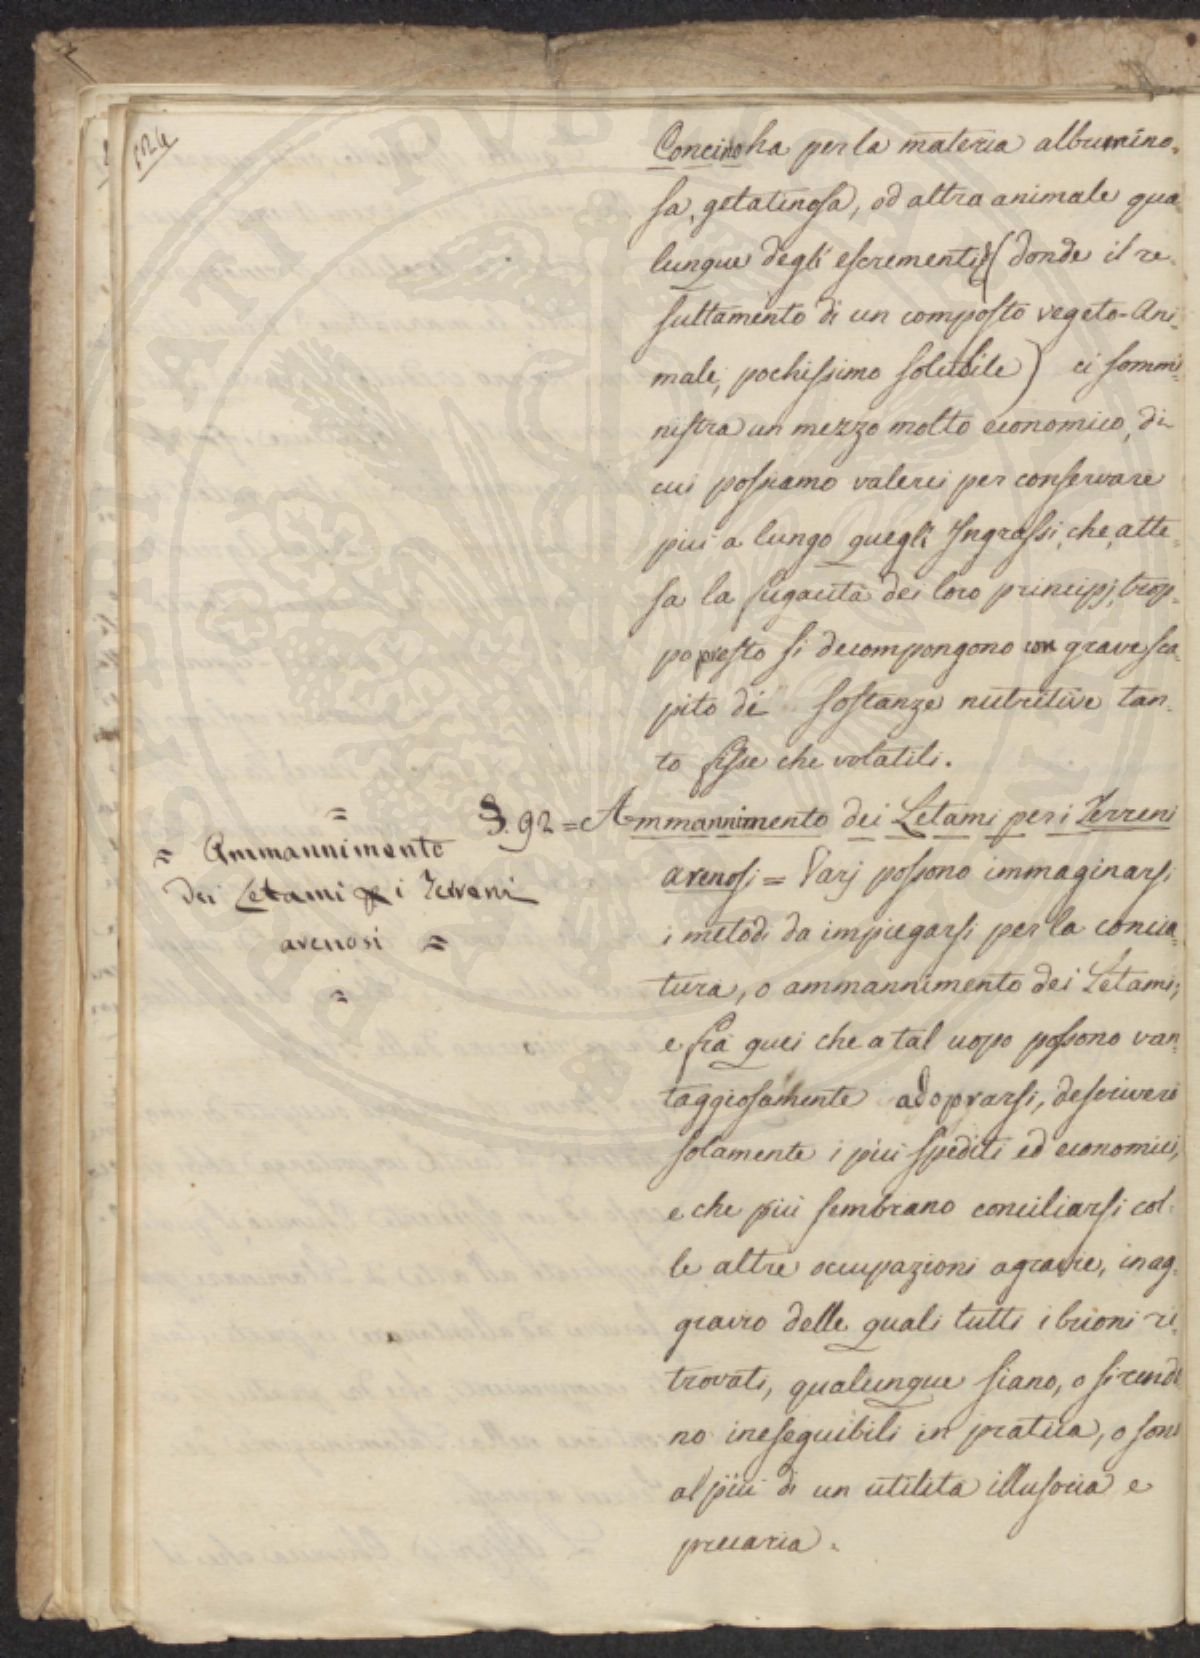 124
Concino ha per la materia albumino-
sa, gelatinosa, od altra animale qua
lunque degli escrementi (donde il re-
sultamento di un composto vegeto-Ani-
male, pochissimo solubile) ci sommi-
nistra un mezzo molto economico, di
cui possiamo valerci per conservare
più a lungo quegli Ingrassi, che, atte-
sa la fugacità dei loro principj, trop-
po presto si decompongono con grave sca-
pito di sostanze nutritive tan-
to fisse che volatili.
§. 92 = Ammannimento dei Letami per i Terreni
arenosi = Varj possono immaginarsi
i metodi da impiegarsi per la concia-
tura, o ammannimento dei Letami;
e fra quei che a tal uopo possono van
taggiosamente adoprarsi, descriverò
solamente i più spediti ed economici,
e che più sembrano conciliarsi col-
le altre occupazioni agrarie, in ag-
gravio delle quali tutti i buoni ri-
trovati, qualunque siano, o si rendo
no ineseguibili in pratica, o sono
al più di un utilità illusoria e
precaria.
=
= Ammannimento
dei Letami p i Terreni
arenosi =
=